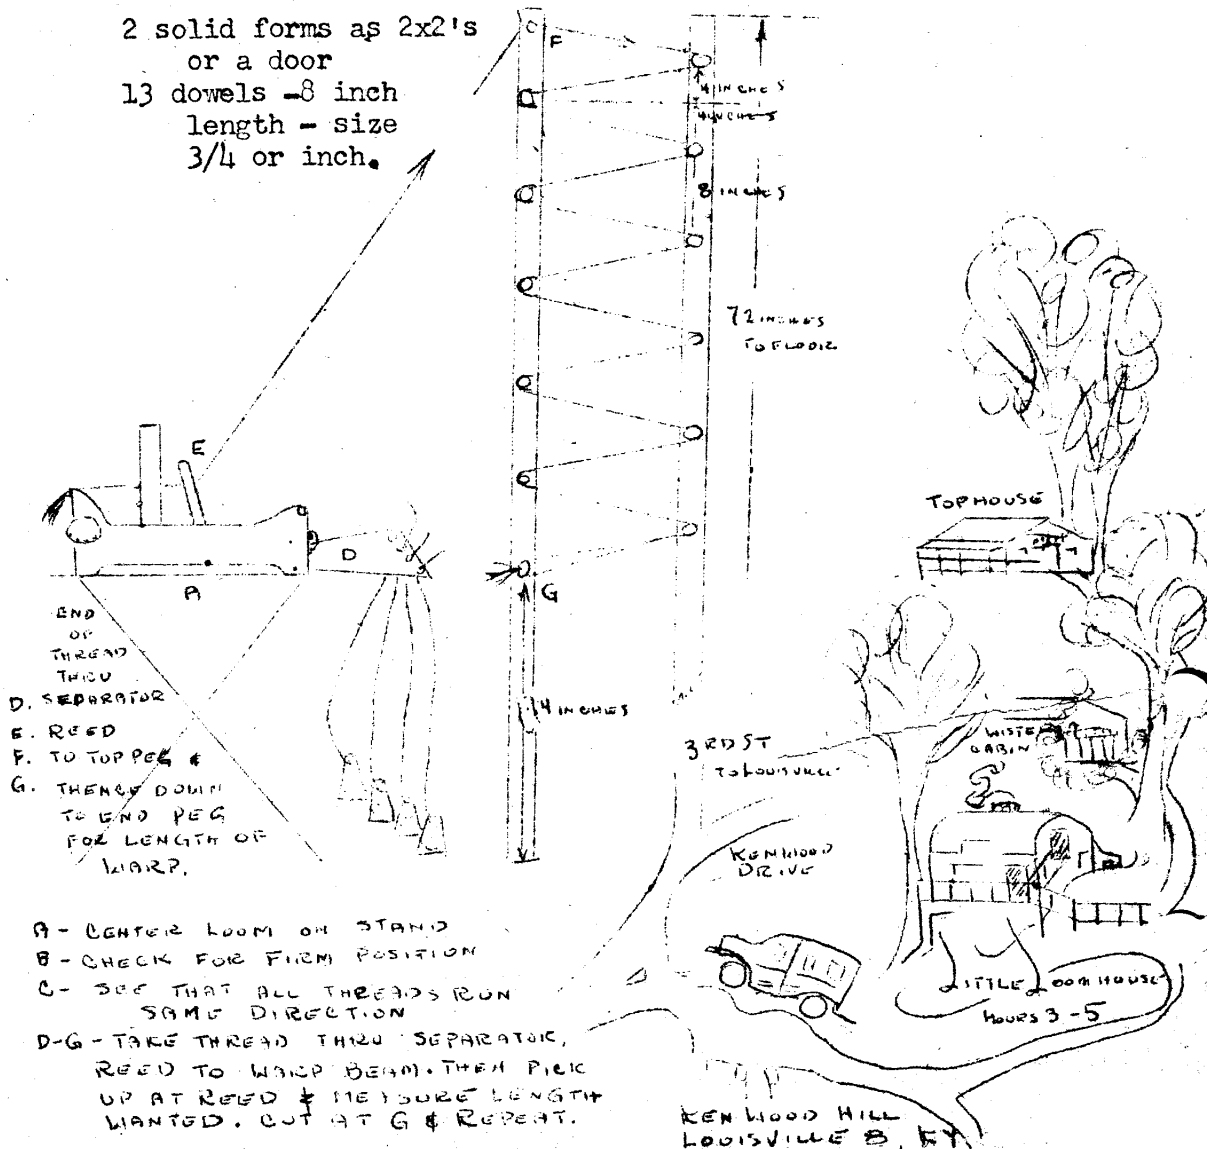 2 solid forms as 2x2's
or a door
13 dowels -8 inch
length - size
3/4 or inch.
F
4 INCHES
4 INCHES
8 INCHES
72 INCHES
TO FLOOR
E
D
A
G
14 INCHES
END
OF
THREAD
THRU
D. SEPARATOR
E. REED
F. TO TOP PEG &
G. THENCE DOWN
TO END PEG
FOR LENGTH OF
WARP.
A - CENTER LOOM ON STAND
B - CHECK FOR FIRM POSITION
C - SEE THAT ALL THREADS RUN
SAME DIRECTION
D-G - TAKE THREAD THRU SEPARATOR,
REED TO WARP BEAM. THEN PICK
UP AT REED & MEASURE LENGTH
WANTED. CUT AT G & REPEAT.
TOP HOUSE
CABIN
3RD ST
TO LOUISVILLE
KENWOOD
DRIVE
LITTLE LOOM HOUSE
HOURS 3-5
KENWOOD HILL
LOUISVILLE 8, KY.